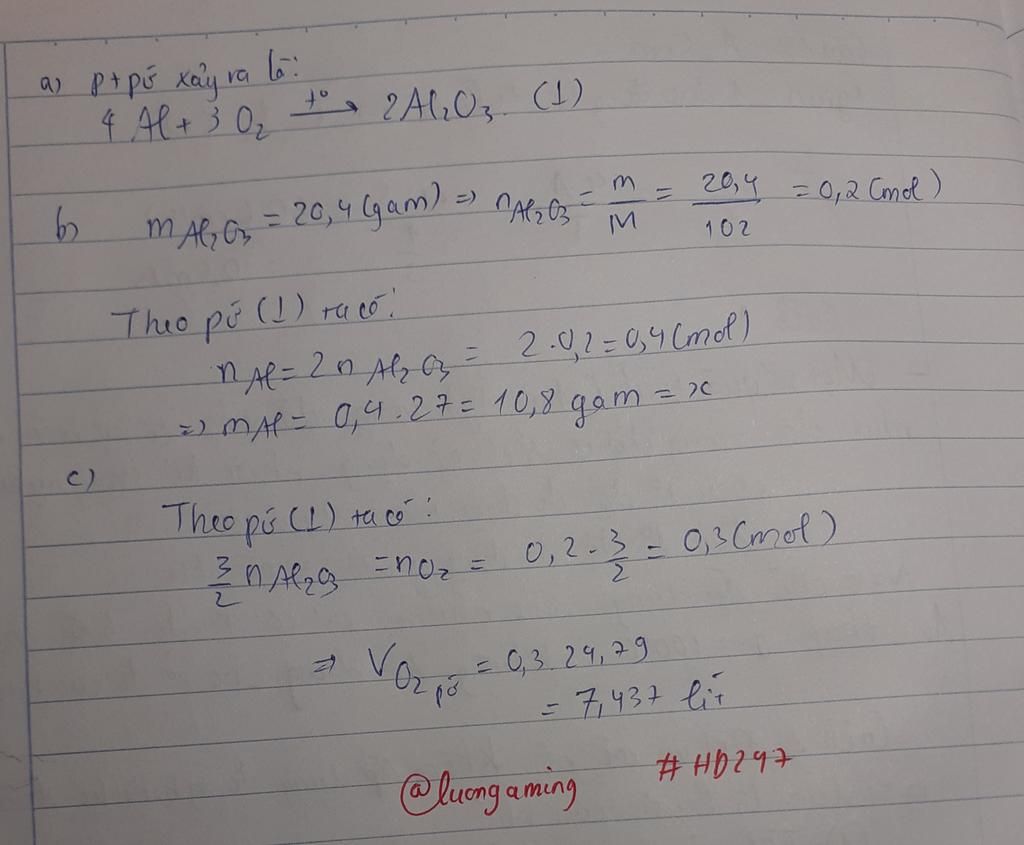 a) ptpứ xảy ra là:
4 Al + 3 O₂ →(t°) 2Al₂O₃. (1)
b) m Al₂O₃ = 20,4 (gam) => n Al₂O₃ = m/M = 20,4/102 = 0,2 (mol)
Theo pứ (1) ta có:
n Al = 2 n Al₂O₃ = 2.0,2 = 0,4 (mol)
=> m Al = 0,4.27 = 10,8 gam = x
c)
Theo pứ (1) ta có:
3/2 n Al₂O₃ = n O₂ = 0,2.3/2 = 0,3 (mol)
=> V O₂ pứ = 0,3.24,79
= 7,437 lít
@luongaming #HD247